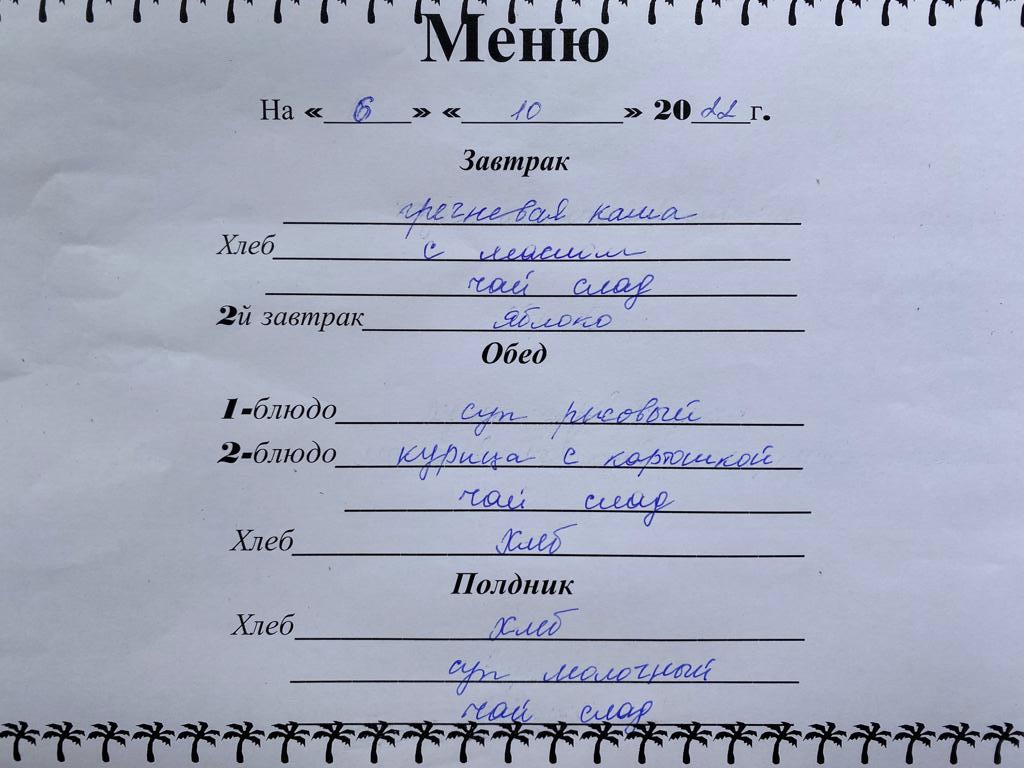 Меню
На « 6 » « 10 » 2022 г.
Завтрак
гречневая каша
Хлеб с маслом
чай слад
2й завтрак яблоко
Обед
1-блюдо суп рисовый
2-блюдо курица с картошкой
чай слад
Хлеб хлеб
Полдник
Хлеб хлеб
суп молочный
чай слад